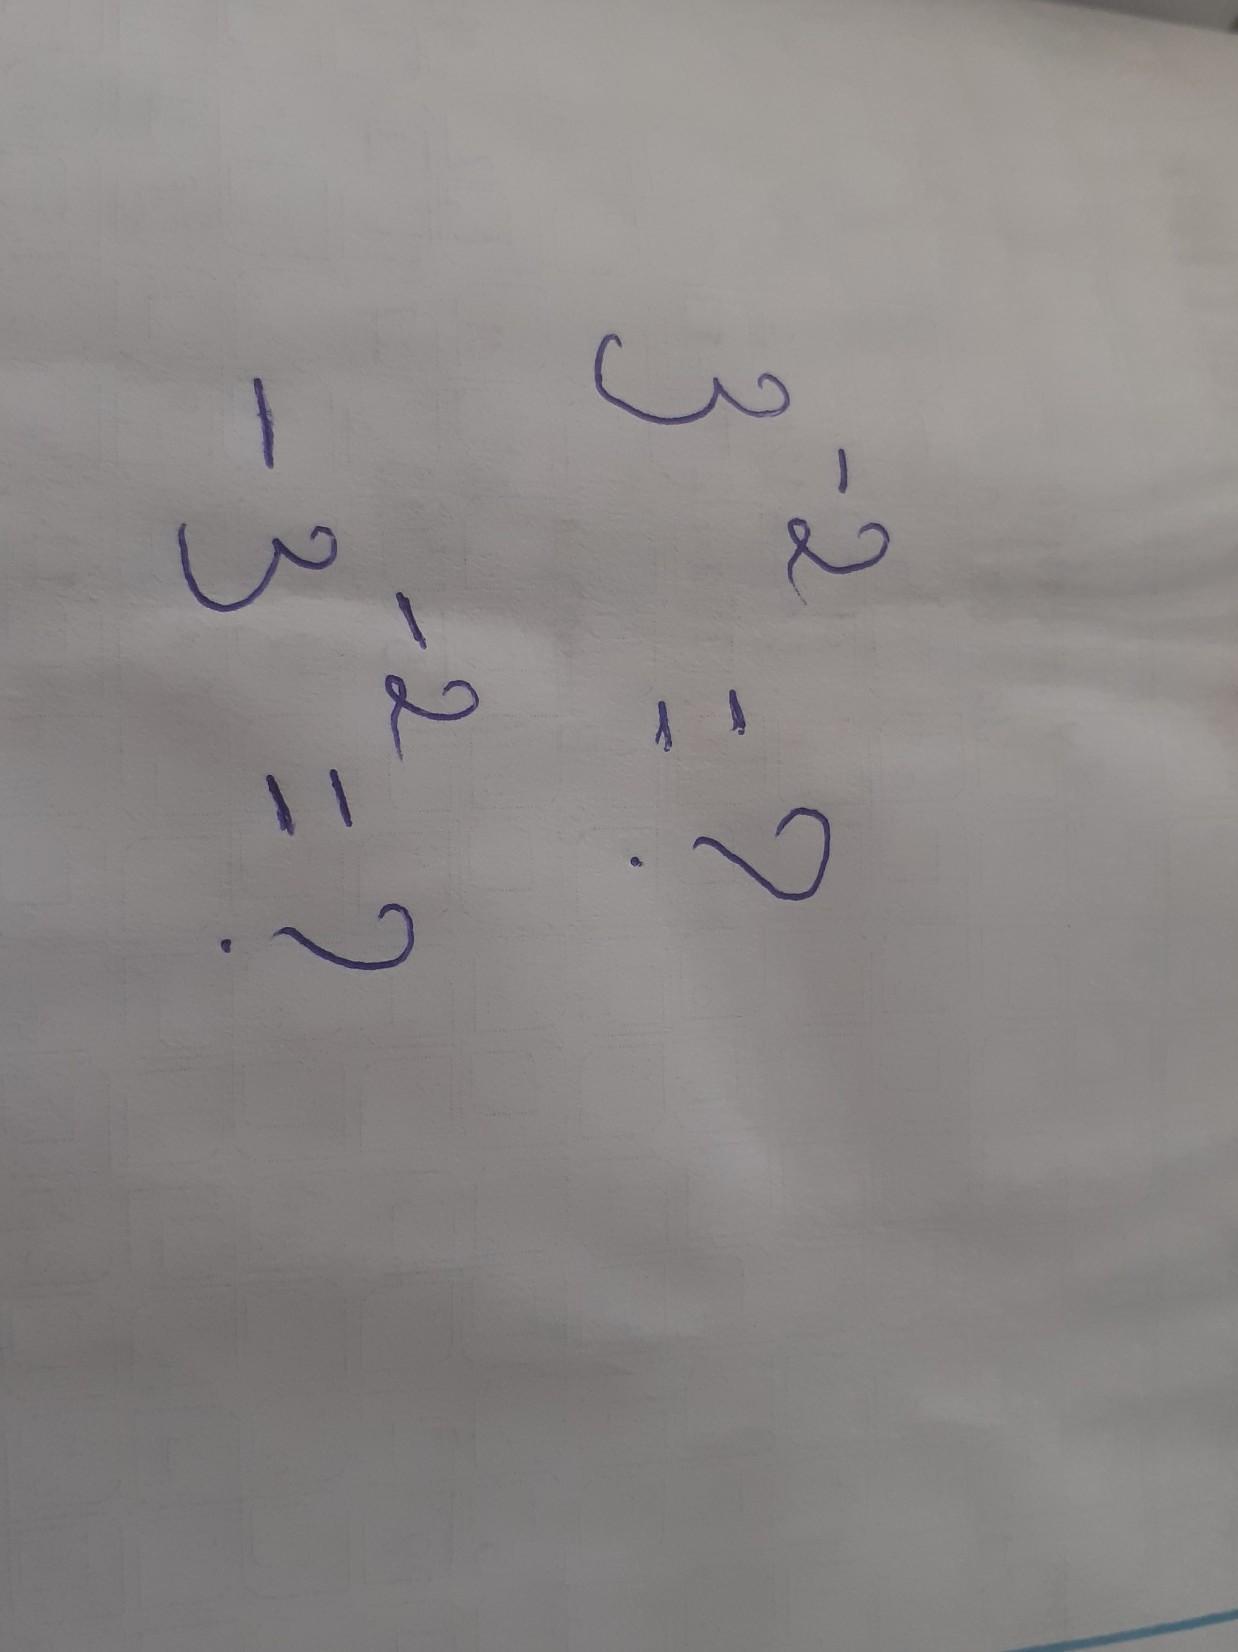 3⁻² = ?
-3⁻² = ?